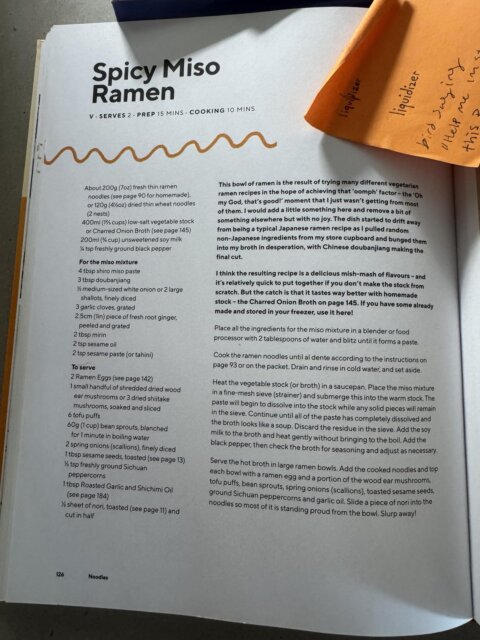 Spicy Miso
Ramen
V · SERVES 2 · PREP 15 MINS · COOKING 10 MINS
About 200g (7oz) fresh thin ramen
noodles (see page 90 for homemade),
or 120g (4¼oz) dried thin wheat noodles
(2 nests)
400ml (1¾ cups) low-salt vegetable stock
or Charred Onion Broth (see page 145)
200ml (¾ cup) unsweetened soy milk
¼ tsp freshly ground black pepper
For the miso mixture
4 tbsp shiro miso paste
3 tbsp doubanjiang
½ medium-sized white onion or 2 large
shallots, finely diced
3 garlic cloves, grated
2.5cm (1in) piece of fresh root ginger,
peeled and grated
2 tbsp mirin
2 tsp sesame oil
2 tsp sesame paste (or tahini)
To serve
2 Ramen Eggs (see page 142)
1 small handful of shredded dried wood
ear mushrooms or 3 dried shiitake
mushrooms, soaked and sliced
6 tofu puffs
60g (1 cup) bean sprouts, blanched
for 1 minute in boiling water
2 spring onions (scallions), finely diced
1 tbsp sesame seeds, toasted (see page 13)
½ tsp freshly ground Sichuan
peppercorns
1 tbsp Roasted Garlic and Shichimi Oil
(see page 184)
½ sheet of nori, toasted (see page 11) and
cut in half
This bowl of ramen is the result of trying many different vegetarian
ramen recipes in the hope of achieving that 'oomph' factor – the 'Oh
my God, that's good!' moment that I just wasn't getting from most
of them. I would add a little something here and remove a bit of
something elsewhere but with no joy. The dish started to drift away
from being a typical Japanese ramen recipe as I pulled random
non-Japanese ingredients from my store cupboard and bunged them
into my broth in desperation, with Chinese doubanjiang making the
final cut.
I think the resulting recipe is a delicious mish-mash of flavours – and
it's relatively quick to put together if you don't make the stock from
scratch. But the catch is that it tastes way better with homemade
stock – the Charred Onion Broth on page 145. If you have some already
made and stored in your freezer, use it here!
Place all the ingredients for the miso mixture in a blender or food
processor with 2 tablespoons of water and blitz until it forms a paste.
Cook the ramen noodles until al dente according to the instructions on
page 93 or on the packet. Drain and rinse in cold water, and set aside.
Heat the vegetable stock (or broth) in a saucepan. Place the miso mixture
in a fine-mesh sieve (strainer) and submerge this into the warm stock. The
paste will begin to dissolve into the stock while any solid pieces will remain
in the sieve. Continue until all of the paste has completely dissolved and
the broth looks like a soup. Discard the residue in the sieve. Add the soy
milk to the broth and heat gently without bringing to the boil. Add the
black pepper, then check the broth for seasoning and adjust as necessary.
Serve the hot broth in large ramen bowls. Add the cooked noodles and top
each bowl with a ramen egg and a portion of the wood ear mushrooms,
tofu puffs, bean sprouts, spring onions (scallions), toasted sesame seeds,
ground Sichuan peppercorns and garlic oil. Slide a piece of nori into the
noodles so most of it is standing proud from the bowl. Slurp away!
126 Noodles
liquidizer
liquidizer
bird saying
"Help me
this